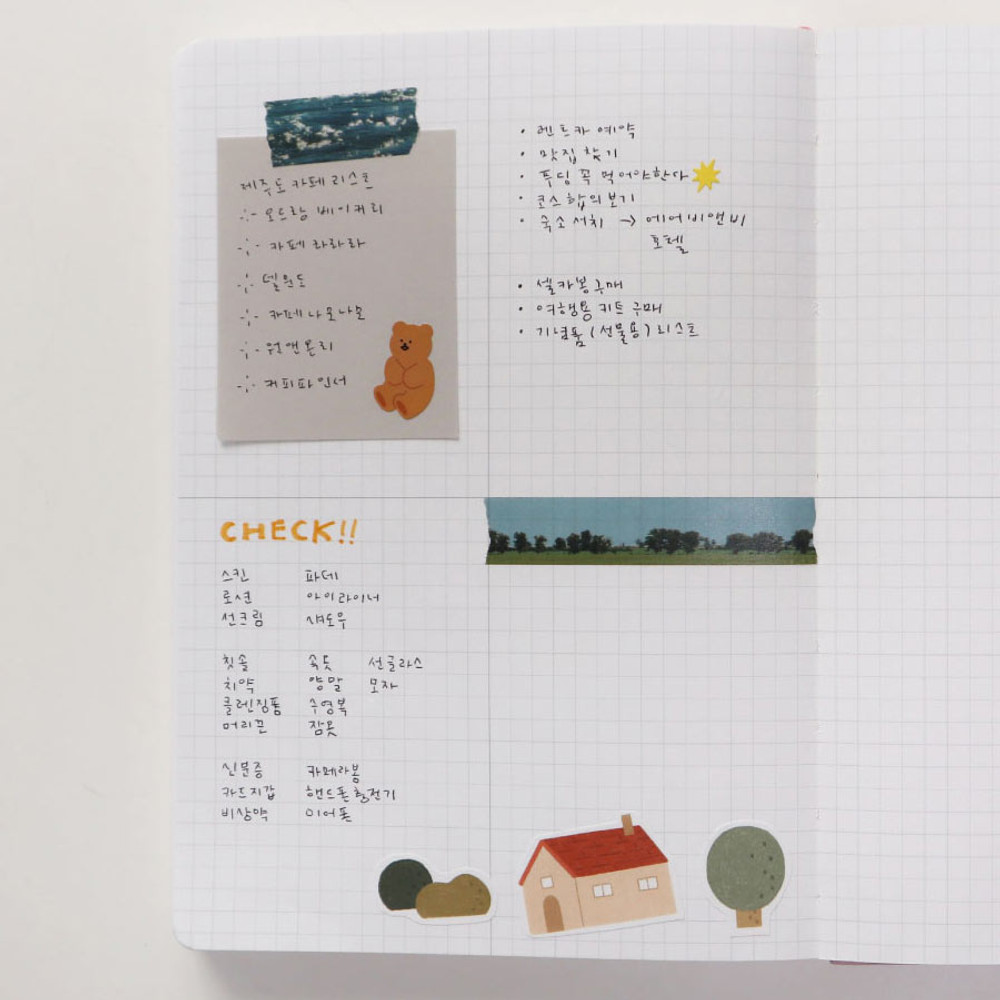 제주도 카페 리스트
오드랑 베이커리
카페 라라라
델문도
카페 나모나모
원앤온리
커피파인서
• 렌트카 예약
• 맛집 찾기
• 푸딩 꼭 먹어야한다
• 코스 합의보기
• 숙소 서치 → 에어비앤비
호텔
• 셀카봉 구매
• 여행용 키트 구매
• 기념품 (선물용) 리스트
CHECK!!
스킨 파데
로션 아이라이너
선크림 섀도우
칫솔 속옷 선글라스
치약 양말 모자
클렌징폼 수영복
머리끈 잠옷
신분증 카메라봉
카드지갑 핸드폰 충전기
비상약 이어폰